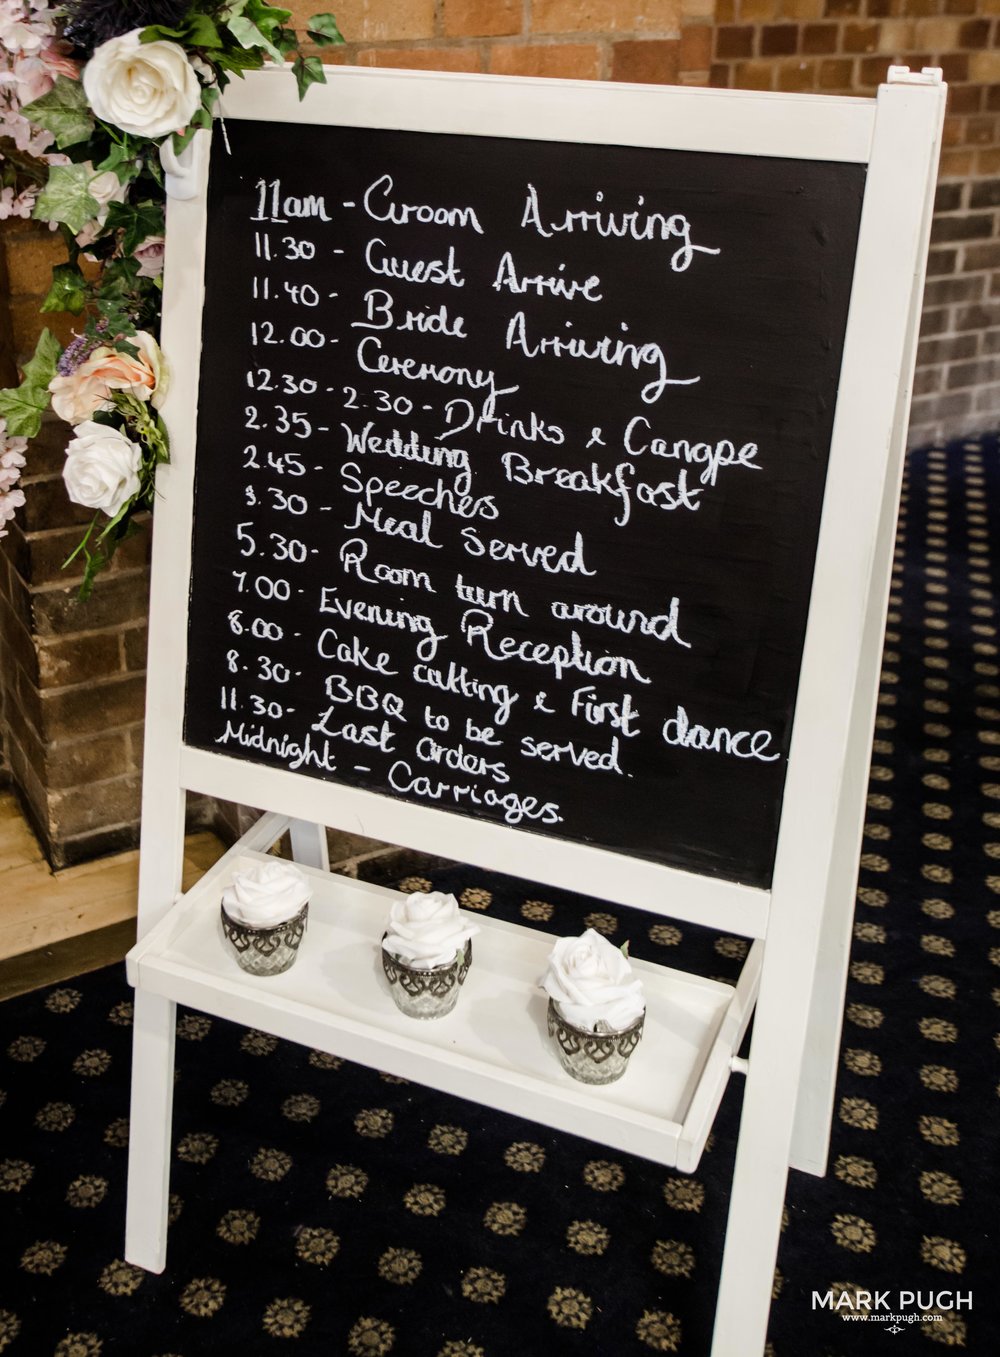 11am - Groom Arriving
11.30 - Guest Arrive
11.40 - Bride Arriving
12.00 - Ceremony
12.30 - 2.30 - Drinks & Canape
2.35 - Wedding Breakfast
2.45 - Speeches
3.30 - Meal Served
5.30 - Room turn around
7.00 - Evening Reception
8.00 - Cake cutting & First dance
8.30 - BBQ to be served.
11.30 - Last orders
Midnight - Carriages.
MARK PUGH
www.markpugh.com